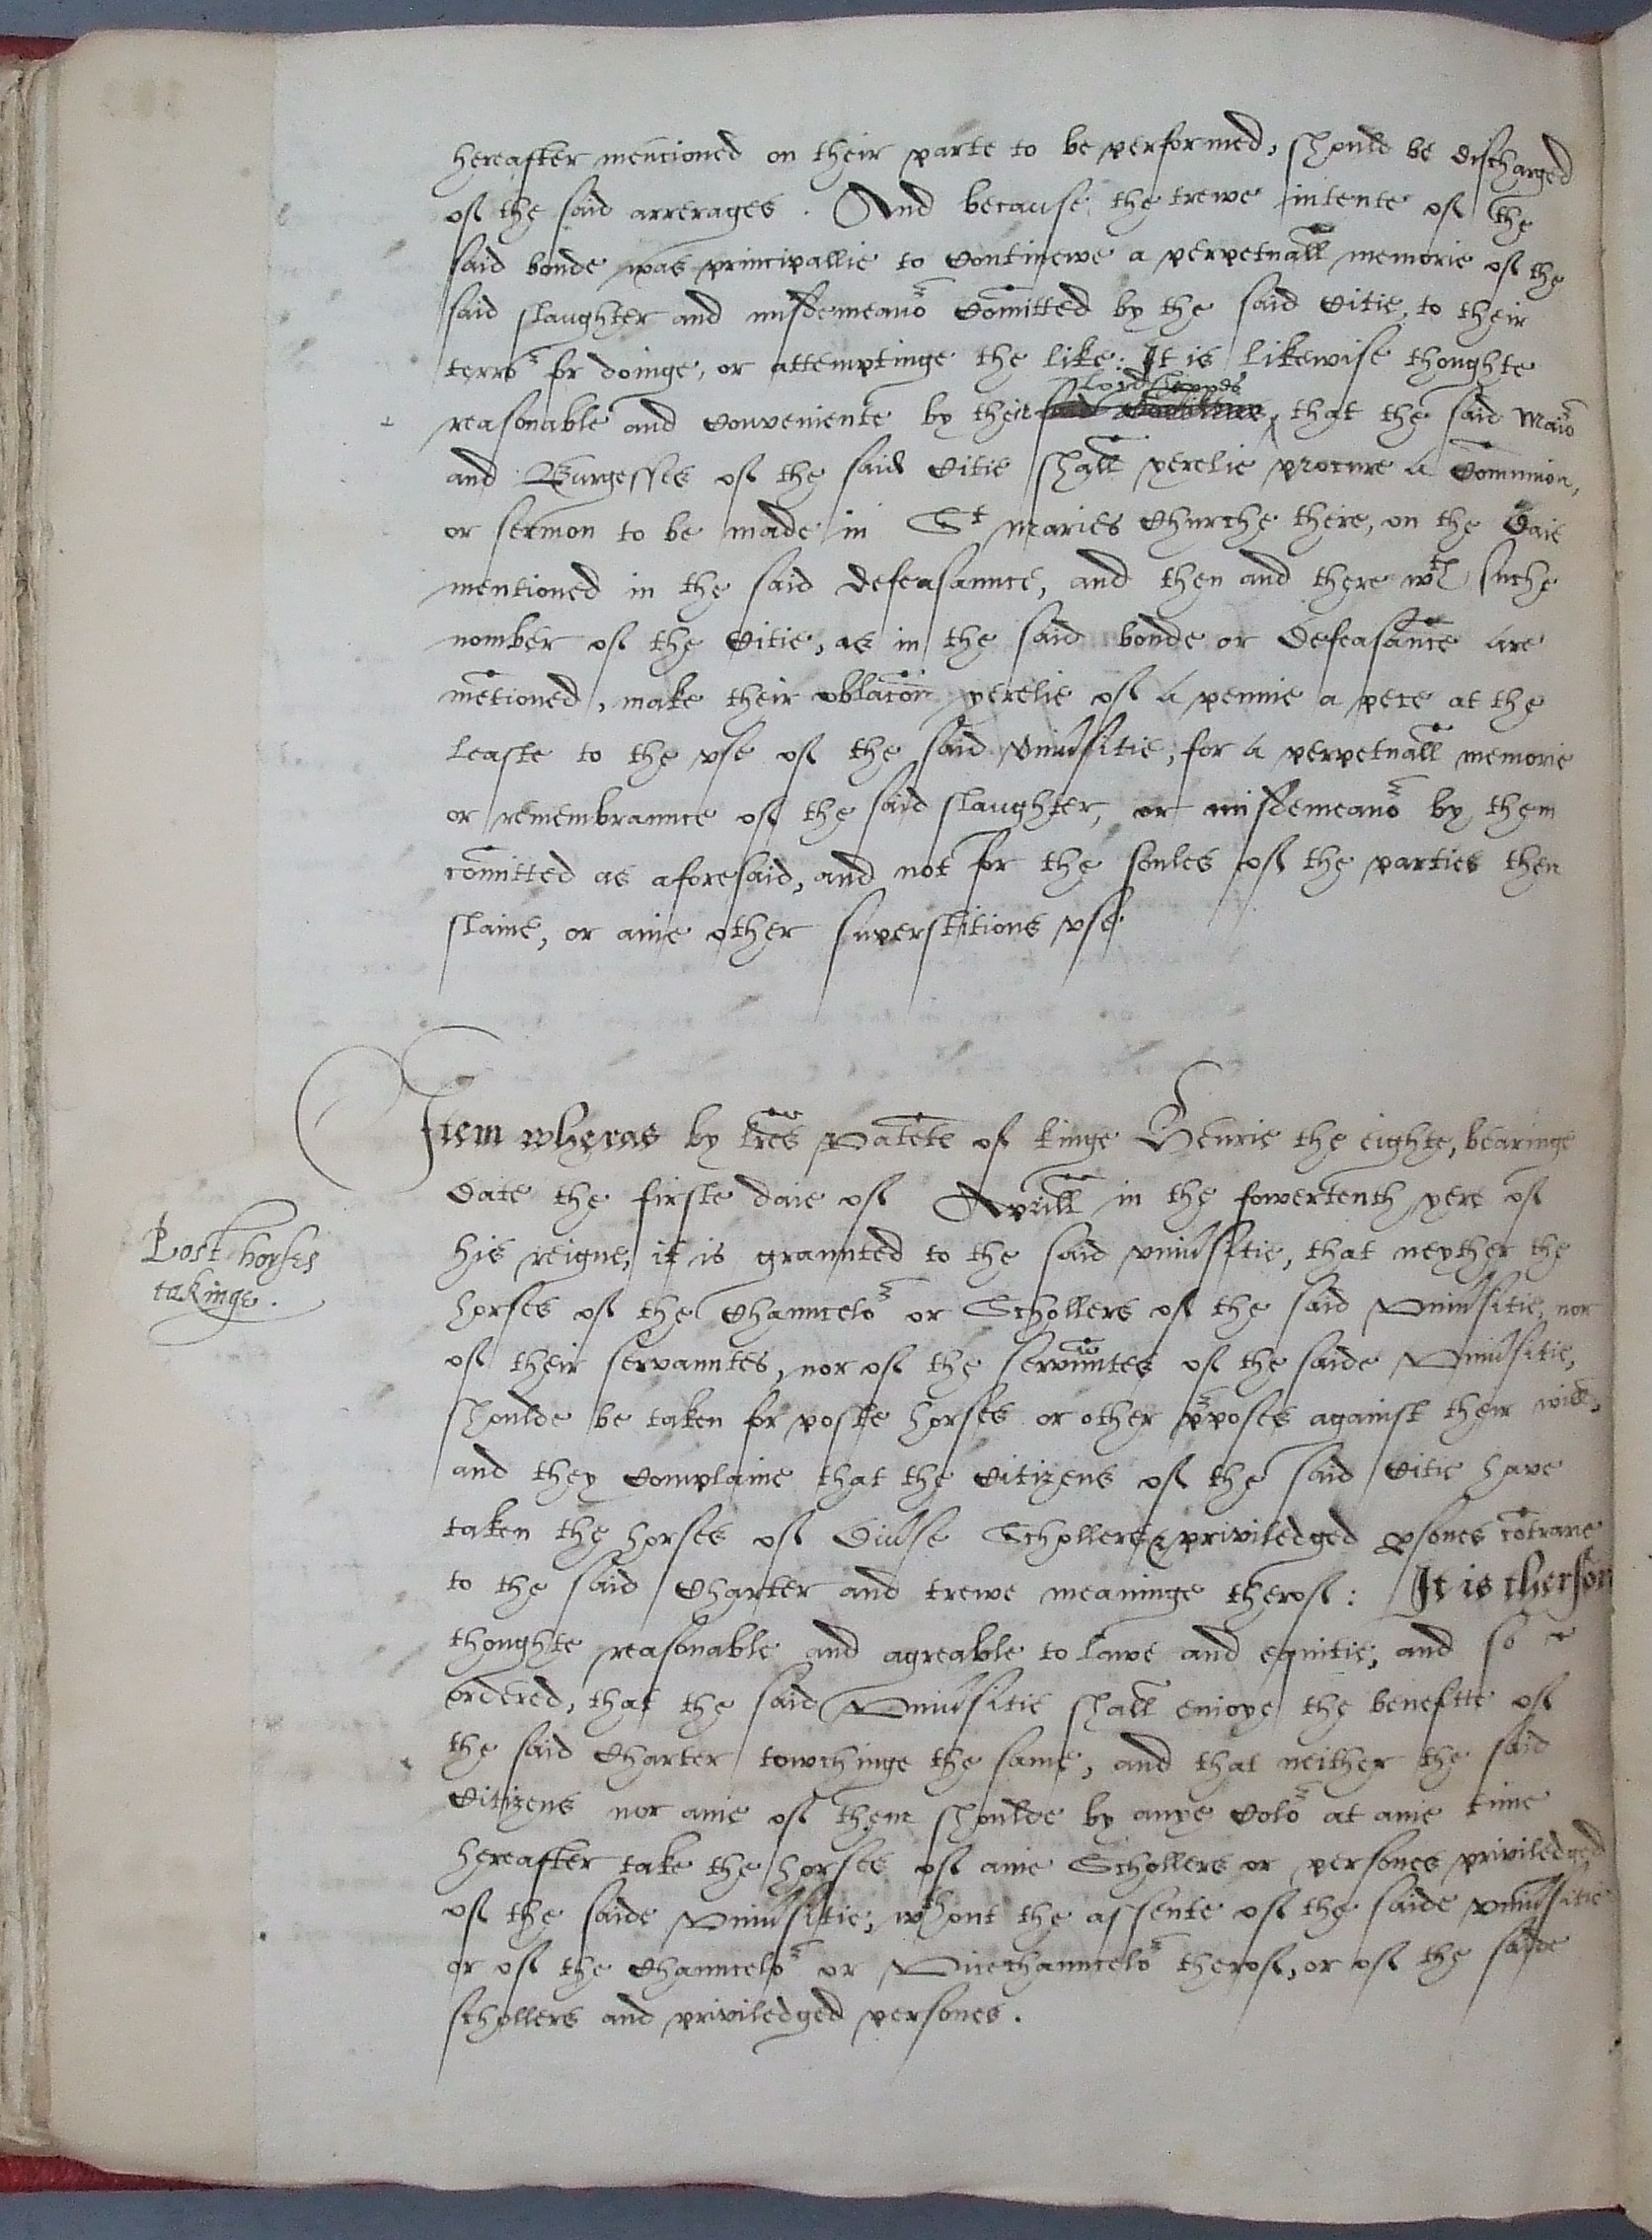 hereafter mencioned on their parte to be performed, should be discharged
of the said arrerages. And because the trewe intente of the
said bonde was principallie to continewe a perpetuall memorie of the
said slaughter and misdemeano^r comitted by the said Citie, to their
terro^r for doinge, or attemptinge the like: It is likewise thoughte
reasonable and conveniente by their Lordshippes, that the said Maio^r
and Burgesses of the said Citie shall yerelie procure a Communion,
or sermon to be made in S^t Maries Churche there, on the daie
mentioned in the said defeasaunce, and then and there w^th suche
nomber of the Citie, as in the said bonde or defeasance are
metioned, make their oblacon yerelie of a pennie a pece at the
leaste to the vse of the said vniu^rsitie, for a perpetuall memorie
or remembraunce of the said slaughter, or misdemeano^r by them
comitted as aforesaid, and not for the soules of the parties then
slaine, or anie other superstitious vse
Item wheras by lres Patete of kinge Henrie the eighte, bearinge
date the firste daie of Aprill in the fowertenth yere of
Post horses
takinge.
his reigne, it is graunted to the said vniu^rsitie, that neyther the
horses of the Chauncelo^r or Schollers of the said Vniu^rsitie, nor
of their servauntes, nor of the servuntes of the saide Vniu^rsitie,
shoulde be taken for poste horses or other p^rposes against their will,
and they complaine that the Citizens of the said Citie have
taken the horses of diu^rse Schollers & priviledged psones cotrarie
to the said Charter and trewe meaninge therof: It is therfore
thoughte reasonable and agreable to lawe and equitie, and so
ordered, that the said Vniu^rsitie shall enioye the benefitte of
the said Charter towchinge the same, and that neither the said
Citizens nor anie of them shoulde by anye Colo^r at anie time
hereafter take the horses of anie Schollers or persones priviledged
of the saide Vniu^rsitie, w^thout the assente of the saide vniu^rsitie
or of the Chauncelo^r or Vicechauncelo^r therof, or of the saide
schollers and priviledged persones.